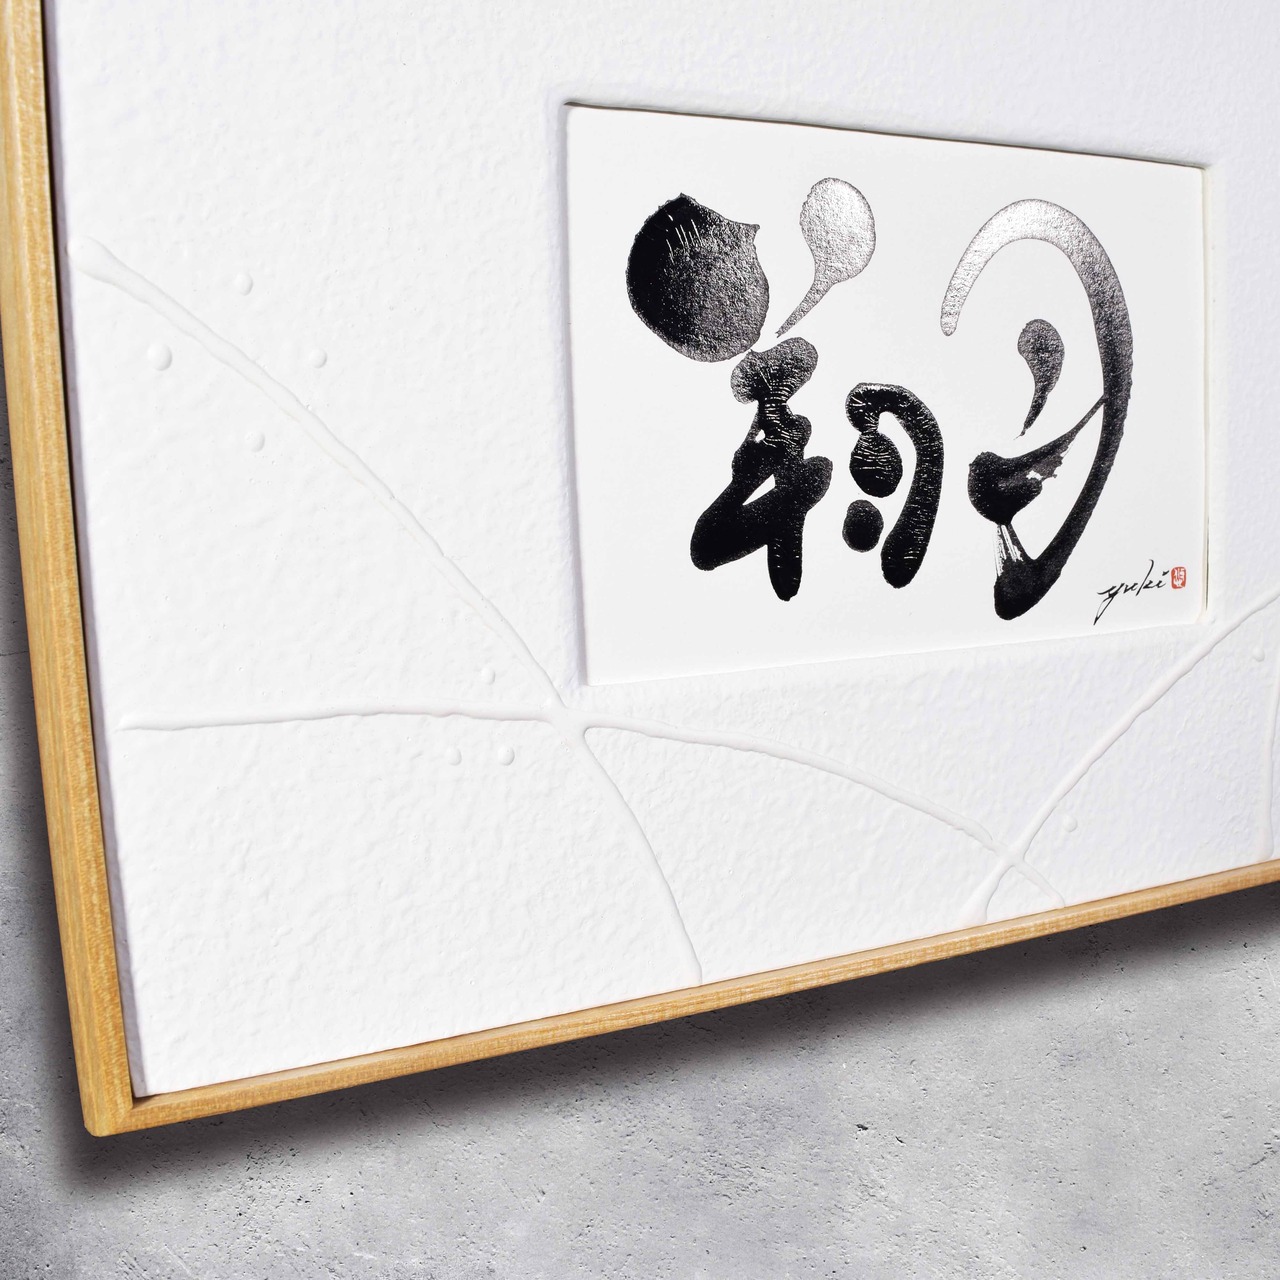 翔
yuki